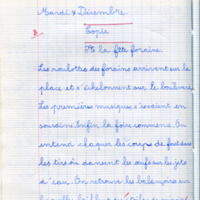 Mardi 4 Décembre
Copie
A la fête foraine.
Les roulottes des forains arrivent sur la
place et s'échelonnent sur le boulevard
Les premières musiques s'essaient en
sourdine. Enfin la foire commence. On
entend claquer les coups de fusil sur
les tirs où dansent les œufs sur les jets
d'eau. On retrouve les balançoires sur